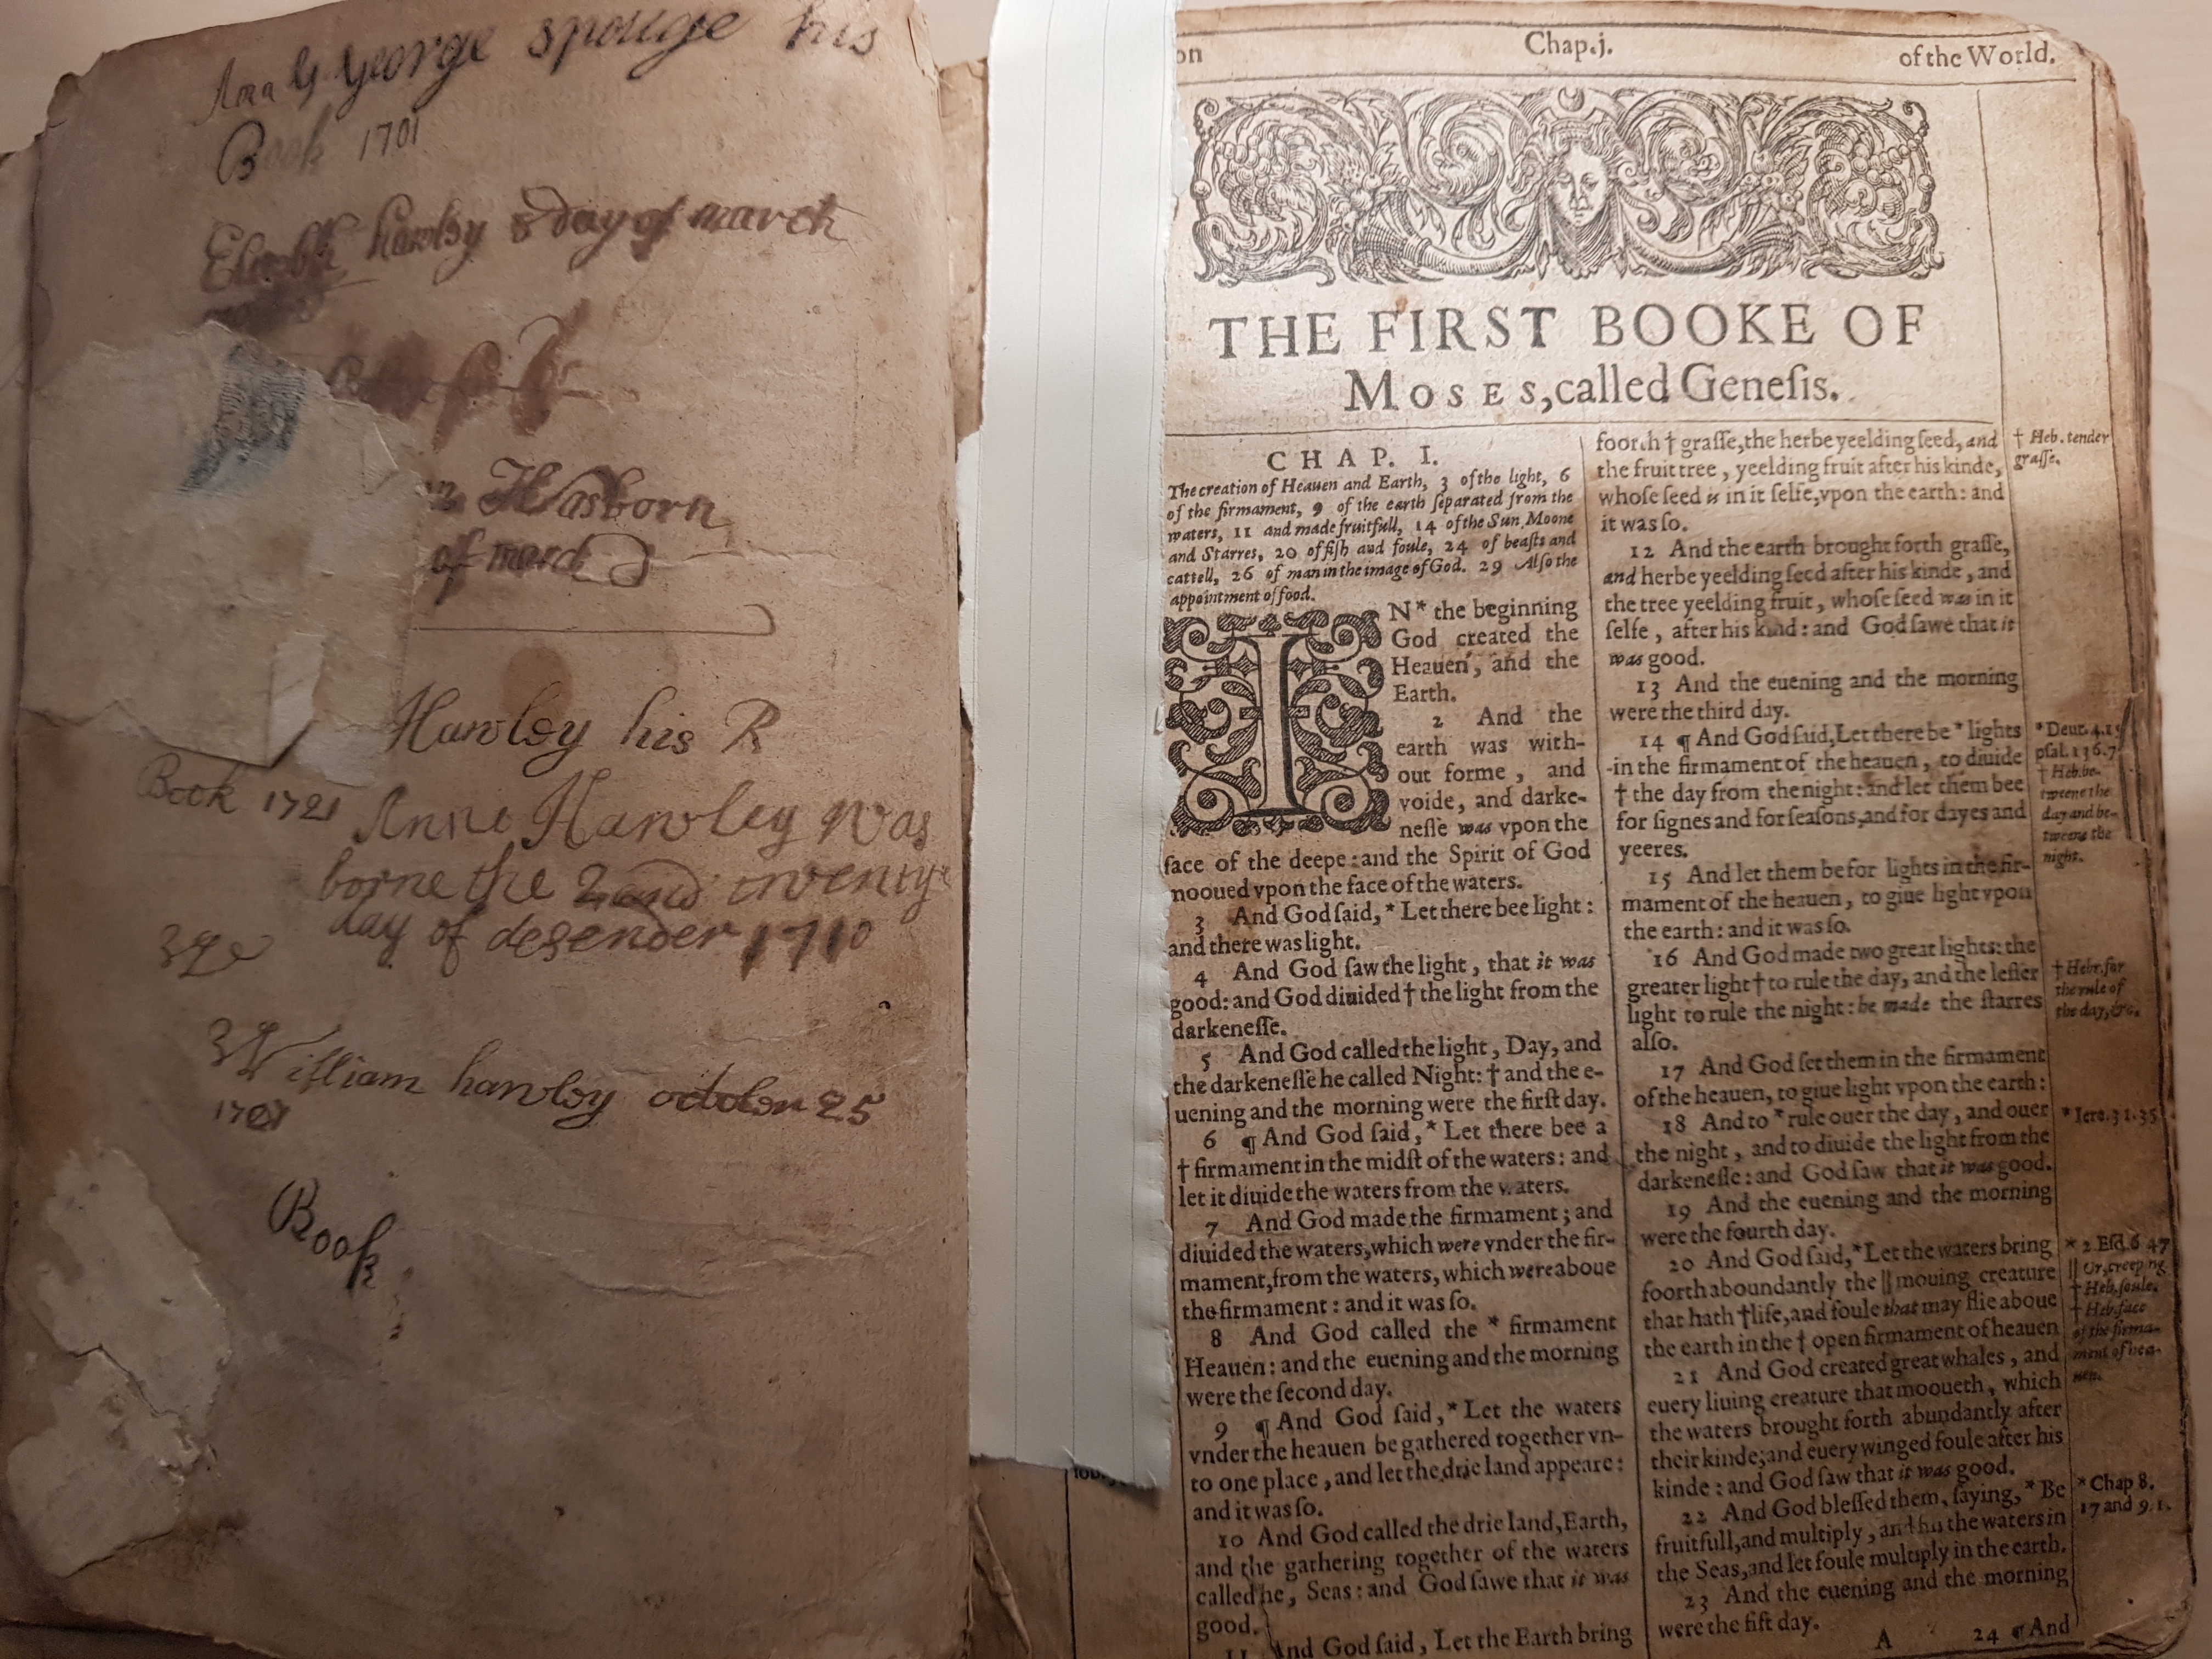 George spouge his
Book 1701
hawley 8 day of march
Hasborn
of march
Hawley his R
Book 1721
Anne Hawley was
borne the 2 and twenty
day of desember 1710
William hawley october 25
Book
Chap.j.
of the World.
THE FIRST BOOKE OF
MOSES,called Geneſis.
CHAP. I.
The creation of Heauen and Earth, 3 of the light, 6
of the firmament, 9 of the earth ſeparated from the
waters, 11 and made fruitfull, 14 of the Sun, Moone
and Starres, 20 of fiſh and foule, 24 of beaſts and
cattell, 26 of man in the image of God. 29 Alſo the
appointment of food.
IN* the beginning
God created the
Heauen, and the
Earth.
2 And the
earth was with-
out forme, and
voide, and darke-
neſſe was vpon the
face of the deepe: and the Spirit of God
mooued vpon the face of the waters.
3 And God ſaid,* Let there bee light:
and there was light.
4 And God ſaw the light, that it was
good: and God diuided † the light from the
darkeneſſe.
5 And God called the light, Day, and
the darkeneſſe he called Night: † and the e-
uening and the morning were the firſt day.
6 ¶ And God ſaid,* Let there bee a
† firmament in the midſt of the waters: and
let it diuide the waters from the waters.
7 And God made the firmament; and
diuided the waters, which were vnder the fir-
mament, from the waters, which were aboue
the firmament: and it was ſo.
8 And God called the * firmament
Heauen: and the euening and the morning
were the ſecond day.
9 ¶ And God ſaid,* Let the waters
vnder the heauen be gathered together vn-
to one place, and let the drie land appeare:
and it was ſo.
10 And God called the drie land, Earth,
and the gathering together of the waters
called he, Seas: and God ſawe that it was
good.
11 And God ſaid, Let the Earth bring
foorth † graſſe, the herbe yeelding ſeed, and
the fruit tree, yeelding fruit after his kinde,
whoſe ſeed is in it ſelfe, vpon the earth: and
it was ſo.
12 And the earth brought forth graſſe,
and herbe yeelding ſeed after his kinde, and
the tree yeelding fruit, whoſe ſeed was in it
ſelfe, after his kind: and God ſawe that it
was good.
13 And the euening and the morning
were the third day.
14 ¶ And God ſaid, Let there be * lights
in the firmament of the heauen, to diuide
† the day from the night: and let them bee
for ſignes and for ſeaſons, and for dayes and
yeeres.
15 And let them be for lights in the fir-
mament of the heauen, to giue light vpon
the earth: and it was ſo.
16 And God made two great lights: the
greater light † to rule the day, and the leſſer
light to rule the night: he made the ſtarres
alſo.
17 And God ſet them in the firmament
of the heauen, to giue light vpon the earth:
18 And to * rule ouer the day, and ouer
the night, and to diuide the light from the
darkeneſſe: and God ſaw that it was good.
19 And the euening and the morning
were the fourth day.
20 And God ſaid,* Let the waters bring
foorth aboundantly the || mouing creature
that hath † life, and foule that may flie aboue
the earth in the † open firmament of heauen
21 And God created great whales, and
euery liuing creature that mooueth, which
the waters brought forth abundantly after
their kinde; and euery winged foule after his
kinde: and God ſaw that it was good.
22 And God bleſſed them, ſaying,* Be
fruitfull, and multiply, and fill the waters in
the Seas, and let foule multiply in the earth.
23 And the euening and the morning
were the fift day.
A
24 ¶ And
† Heb. tender
graſſe.
* Deut. 4.15
pſal. 136.7
† Heb. be-
tweene the
day and be-
tweene the
night.
† Hebr. for
the rule of
the day, &c.
* Iere. 31.35
* 2.Eſd.6 47
|| Or, creeping
† Heb. ſoule.
† Heb. face
of the firma-
ment of hea-
uen.
* Chap 8.
17 and 9.1.